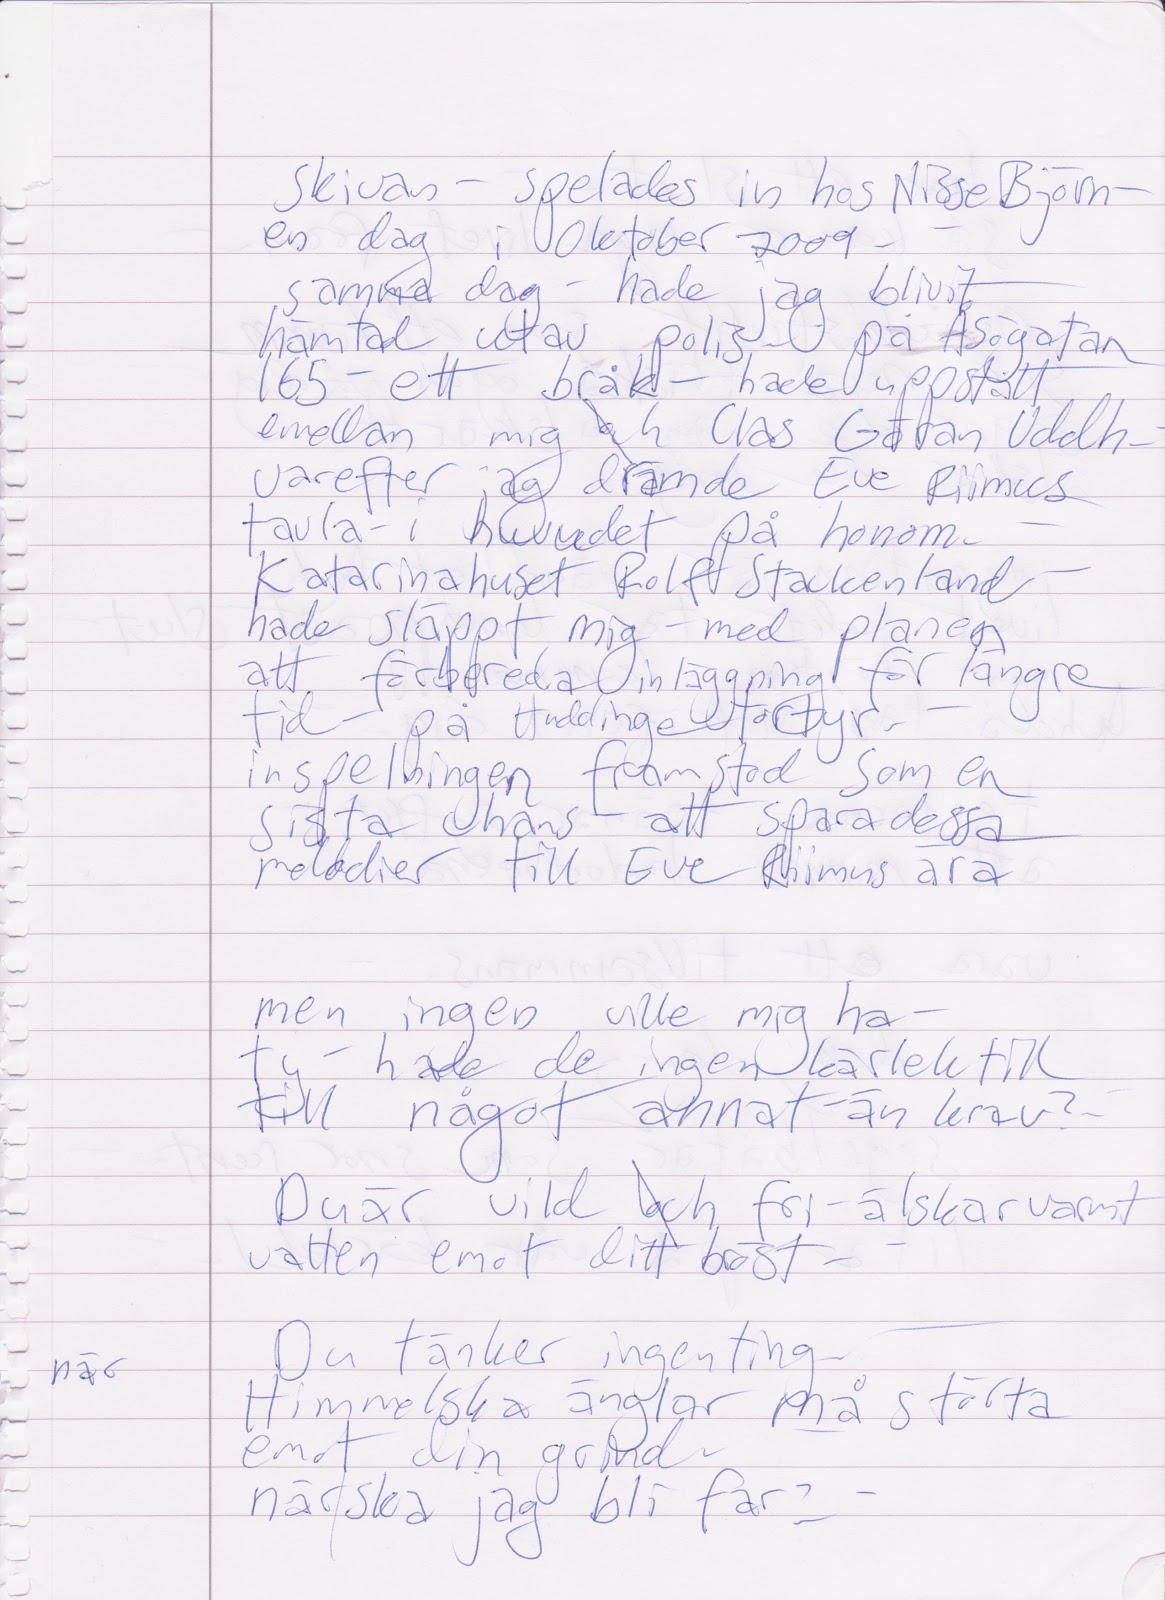 skivan – spelades in hos Nisse Björn –
en dag i Oktober 2009 – –
samma dag – hade jag blivit
hämtad utav polis – på Åsögatan
165 – ett bråk – hade uppstått
emellan mig och Clas Götan Uddh –
varefter jag drämde Eve Riimus
tavla – i huvudet på honom – –
Katarinahuset Rolf Stackenland –
hade släppt mig – med planen
att förbereda inläggning för längre
tid – på Huddinge tortyr – –
inspelningen framstod som en
sista chans – att spara dessa
melodier till Eve Riimus ära
men ingen ville mig ha –
ty – hade de ingen kärlek till
till något annat – än krav? –
Du är vild och fri – älskar varmt
vatten emot ditt bröst – –
Du tänker ingenting –
när
Himmelska änglar må störta
emot din grind –
när ska jag bli far? –